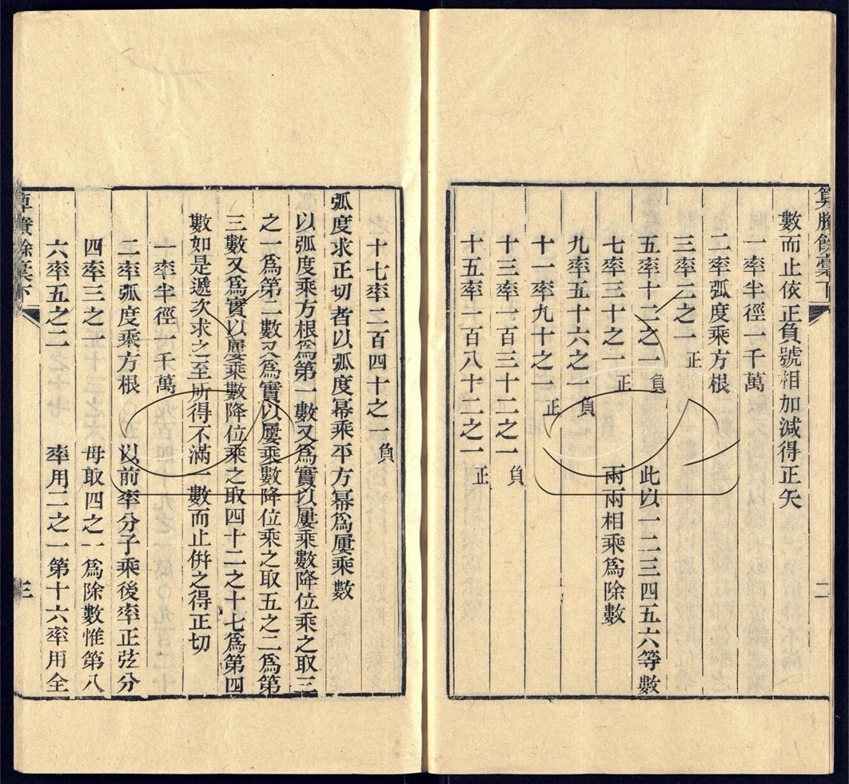 算賸餘稾下 二
數而止依正負號相加減得正矢
一率半徑一千萬
二率弧度乘方根
三率二之一 正
五率十二之一 負 此以一二三四五六等數
七率三十之一 正 兩兩相乘爲除數
九率五十六之一 負
十一率九十之一 正
十三率一百三十二之一 負
十五率一百八十二之一 正
十七率二百四十之一 負
弧度求正切者以弧度冪乘平方冪爲屢乘數
以弧度乘方根爲第一數又爲實以屢乘數降位乘之取三
之一爲第二數又爲實以屢乘數降位乘之取五之二爲第
三數又爲實以屢乘數降位乘之取四十二之十七爲第四
數如是遞次求之至所得不滿一數而止併之得正切
一率半徑一千萬
二率弧度乘方根 以前率分子乘後率正弦分
四率三之一 母取四之一爲除數惟第八
六率五之二 率用二之一第十六率用全
算賸餘稾下 三